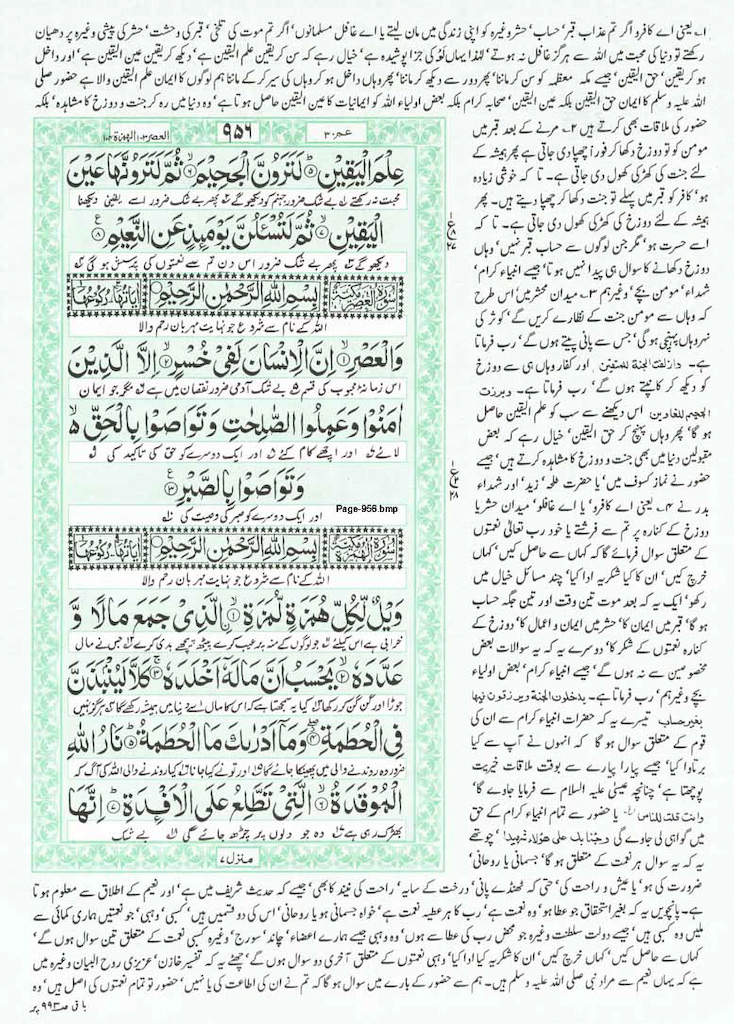 ۱۔ یعنی اے کافرو اگر تم عذاب قبر' حساب' حشر وغیرہ کو اپنی زندگی میں مان لیتے یا اے غافل مسلمانوں' اگر تم موت کی تلخی' قبر کی وحشت' حشر کی پیشی وغیرہ پر دھیان
رکھتے تو دنیا کی محبت میں اللہ سے ہرگز غافل نہ ہوتے' لہٰذا یہاں لَو کی جزا پوشیدہ ہے' خیال رہے کہ سن کر یقین علم الیقین ہے' دیکھ کر یقین عین الیقین ہے' اور داخل
ہو کر یقین' حق الیقین' جیسے مکہ معظمہ کو سن کر ماننا' پھر دور سے دیکھ کر ماننا' پھر وہاں داخل ہو کر وہاں کی سیر کر کے ماننا ہم لوگوں کا ایمان علم الیقین والا ہے حضور صلی
اللہ علیہ وسلم کا ایمان حق الیقین بلکہ عین الیقین' صحابہ کرام بلکہ بعض اولیاء اللہ کو ایمانیات کا عین الیقین حاصل ہوتا ہے' وہ دنیا میں رہ کر جنت و دوزخ کا مشاہدہ' بلکہ
حضور کی ملاقات بھی کرتے ہیں ۲۔ مرنے کے بعد قبر میں
مومن کو تو دوزخ دکھا کر فوراً چھپا دی جاتی ہے پھر ہمیشہ کے
لئے جنت کی کھڑکی کھول دی جاتی ہے۔ تا کہ خوشی زیادہ
ہو' کافر کو قبر میں پہلے تو جنت دکھا کر چھپا دیتے ہیں۔ پھر
ہمیشہ کے لئے دوزخ کی کھڑکی کھول دی جاتی ہے۔ تا کہ
اسے حسرت ہو' مگر جن لوگوں سے حساب قبر نہیں' وہاں
دوزخ دکھانے کا سوال ہی پیدا نہیں ہوتا' جیسے انبیاء کرام'
شہداء' مومن بچے' وغیرہم ۳۔ میدان محشر میں اس طرح
کہ وہاں سے مومن جنت کے نظارے کریں گے' کوثر کی
نہر وہاں پہنچی ہو گی' جس سے پانی پیتے ہوں گے' رب فرماتا
ہے۔ وازلفت الجنة للمتقین۔ اور کفار وہاں ہی سے دوزخ
کو دیکھ کر کانپتے ہوں گے' رب فرماتا ہے۔ وبرزت
الجحیم للغاوین اس دیکھنے سے سب کو علم الیقین حاصل
ہو گا' پھر وہاں پہنچ کر حق الیقین' خیال رہے کہ بعض
مقبولین دنیا میں بھی جنت و دوزخ کا مشاہدہ کرتے ہیں' جیسے
حضور نے نماز کسوف میں' یا حضرت طلحہ' زید' اور شہداء
بدر نے ۴۔ یعنی اے کافرو' یا اے غافلو' میدان حشر یا
دوزخ کے کنارہ پر تم سے فرشتے یا خود رب تعالیٰ نعمتوں
کے متعلق سوال فرمائے گا کہ کہاں سے حاصل کیں' کہاں
خرچ کیں' ان کا کیا شکریہ ادا کیا' چند مسائل خیال میں
رکھو' ایک یہ کہ بعد موت تین وقت اور تین جگہ حساب
ہو گا' قبر میں ایمان کا' حشر میں ایمان و اعمال کا' دوزخ کے
کنارہ نعمتوں کے شکر کا' دوسرے یہ کہ یہ سوالات بعض
مخصوصین سے نہ ہوں گے' جیسے انبیاء کرام' بعض اولیاء
بچے وغیرہم' رب فرماتا ہے۔ یدخلون الجنة ویرزقون فیها
بغیر حساب تیسرے یہ کہ حضرات انبیاء کرام سے ان کی
قوم کے متعلق سوال ہو گا کہ انہوں نے آپ سے کیا
برتاوا کیا' جیسے پیارا پیارے سے بوقت ملاقات خیریت
پوچھتا ہے' چنانچہ عیسیٰ علیہ السلام سے فرمایا جاوے گا'
ءانت قلت للناس الخ۔ یا حضور سے تمام انبیاء کرام کے حق
میں گواہی لی جاوے گی وجئنا بك على هؤلاء شهیدا' چوتھے
یہ کہ یہ سوال ہر نعمت کے متعلق ہو گا' جسمانی یا روحانی'
العصر ۱۰۳ الهمزة ۱۰۴
۹۵۶
عم ۳۰
عِلْمَ الْيَقِيْنِ ۵ لَتَرَوُنَّ الْجَحِيْمَ ۶ ثُمَّ لَتَرَوُنَّهَا عَيْنَ
محبت نہ رکھتے ۱ بے شک ضرور جہنم کو دیکھو گے ۲ پھر بے شک ضرور اسے یقینی دیکھنا
الْيَقِيْنِ ۷ ثُمَّ لَتُسْـَٔلُنَّ يَوْمَئِذٍ عَنِ النَّعِيْمِ ۸
دیکھو گے ۳ پھر بے شک ضرور اس دن تم سے نعمتوں کی پرسش ہو گی ۴
سورة العصر مكية بِسْمِ اللّٰهِ الرَّحْمٰنِ الرَّحِيْمِ اٰیاتها ۳ رکوعها ۱
اللہ کے نام سے شروع جو نہایت مہربان رحم والا
وَالْعَصْرِ ۱ اِنَّ الْاِنْسَانَ لَفِيْ خُسْرٍ ۲ اِلَّا الَّذِيْنَ
اس زمانہ محبوب کی قسم ۵ بے شک آدمی ضرور نقصان میں ہے ۶ مگر جو ایمان
اٰمَنُوْا وَعَمِلُوا الصّٰلِحٰتِ وَتَوَاصَوْا بِالْحَقِّ ۵
لائے ۷ اور اچھے کام کئے ۸ اور ایک دوسرے کو حق کی تاکید کی ۹
وَتَوَاصَوْا بِالصَّبْرِ ۳
اور ایک دوسرے کو صبر کی وصیت کی ۱۰
Page-956.bmp
سورة الهمزة مكية بِسْمِ اللّٰهِ الرَّحْمٰنِ الرَّحِيْمِ اٰیاتها ۹ رکوعها ۱
اللہ کے نام سے شروع جو نہایت مہربان رحم والا
وَيْلٌ لِّكُلِّ هُمَزَةٍ لُّمَزَةِ ۱ الَّذِيْ جَمَعَ مَالًا وَّ
خرابی ہے اس کیلئے ۱۱ جو لوگوں کے منہ پر عیب کرے پیٹھ پیچھے بدی کرے ۱۲ جس نے مال
عَدَّدَهٗ ۲ يَحْسَبُ اَنَّ مَالَهٗٓ اَخْلَدَهٗ ۳ كَلَّا لَيُنْۢبَذَنَّ
جوڑا اور گن گن کر رکھا ۱۳ کیا یہ سمجھتا ہے کہ اس کا مال اسے دنیا میں ہمیشہ رکھے گا ۱۴ ہرگز نہیں
فِي الْحُطَمَةِ ۴ وَمَآ اَدْرٰىكَ مَا الْحُطَمَةُ ۵ نَارُ اللّٰهِ
ضرور وہ روندنے والی میں پھینکا جائے گا ۱۵ اور تو نے کیا جانا کیا روندنے والی اللہ کی آگ کہ
الْمُوْقَدَةُ ۶ الَّتِيْ تَطَّلِعُ عَلَى الْاَفْـِٕدَةِ ۷ اِنَّهَا
بھڑک رہی ہے وہ جو دلوں پر چڑھ جائے گی بے شک
منزل ۷
ضرورت کی ہو' یا عیش و راحت کی' حتی کہ ٹھنڈے پانی' درخت کے سایہ' راحت کی نیند کا بھی' جیسے کہ حدیث شریف میں ہے' اور نعیم کے اطلاق سے معلوم ہوتا
ہے۔ پانچویں یہ کہ بغیر استحقاق جو عطا ہو' وہ نعمت ہے' رب کا ہر عطیہ نعمت ہے' خواہ جسمانی ہو یا روحانی' اس کی دو قسمیں ہیں' کسبی' وہبی' جو نعمتیں ہماری کمائی سے
ملیں وہ کسبی ہیں' جیسے دولت سلطنت وغیرہ جو محض رب کی عطا سے ہوں' وہ وہبی جیسے ہمارے اعضاء' چاند' سورج' وغیرہ کسبی نعمت کے متعلق تین سوال ہوں گے'
کہاں سے حاصل کیں' کہاں خرچ کیں' ان کا شکریہ کیا ادا کیا' وہبی نعمتوں کے متعلق آخری دو سوال ہوں گے' چھٹے یہ کہ تفسیر خازن' عزیزی روح البیان وغیرہ میں
ہے کہ یہاں نعیم سے مراد نبی صلی اللہ علیہ وسلم ہیں۔ ہم سے حضور کے بارے میں سوال ہو گا کہ تم نے ان کی اطاعت کی یا نہیں' حضور تو تمام نعمتوں کی اصل ہیں' وہ
باقی صہ ۹۹۳ پر